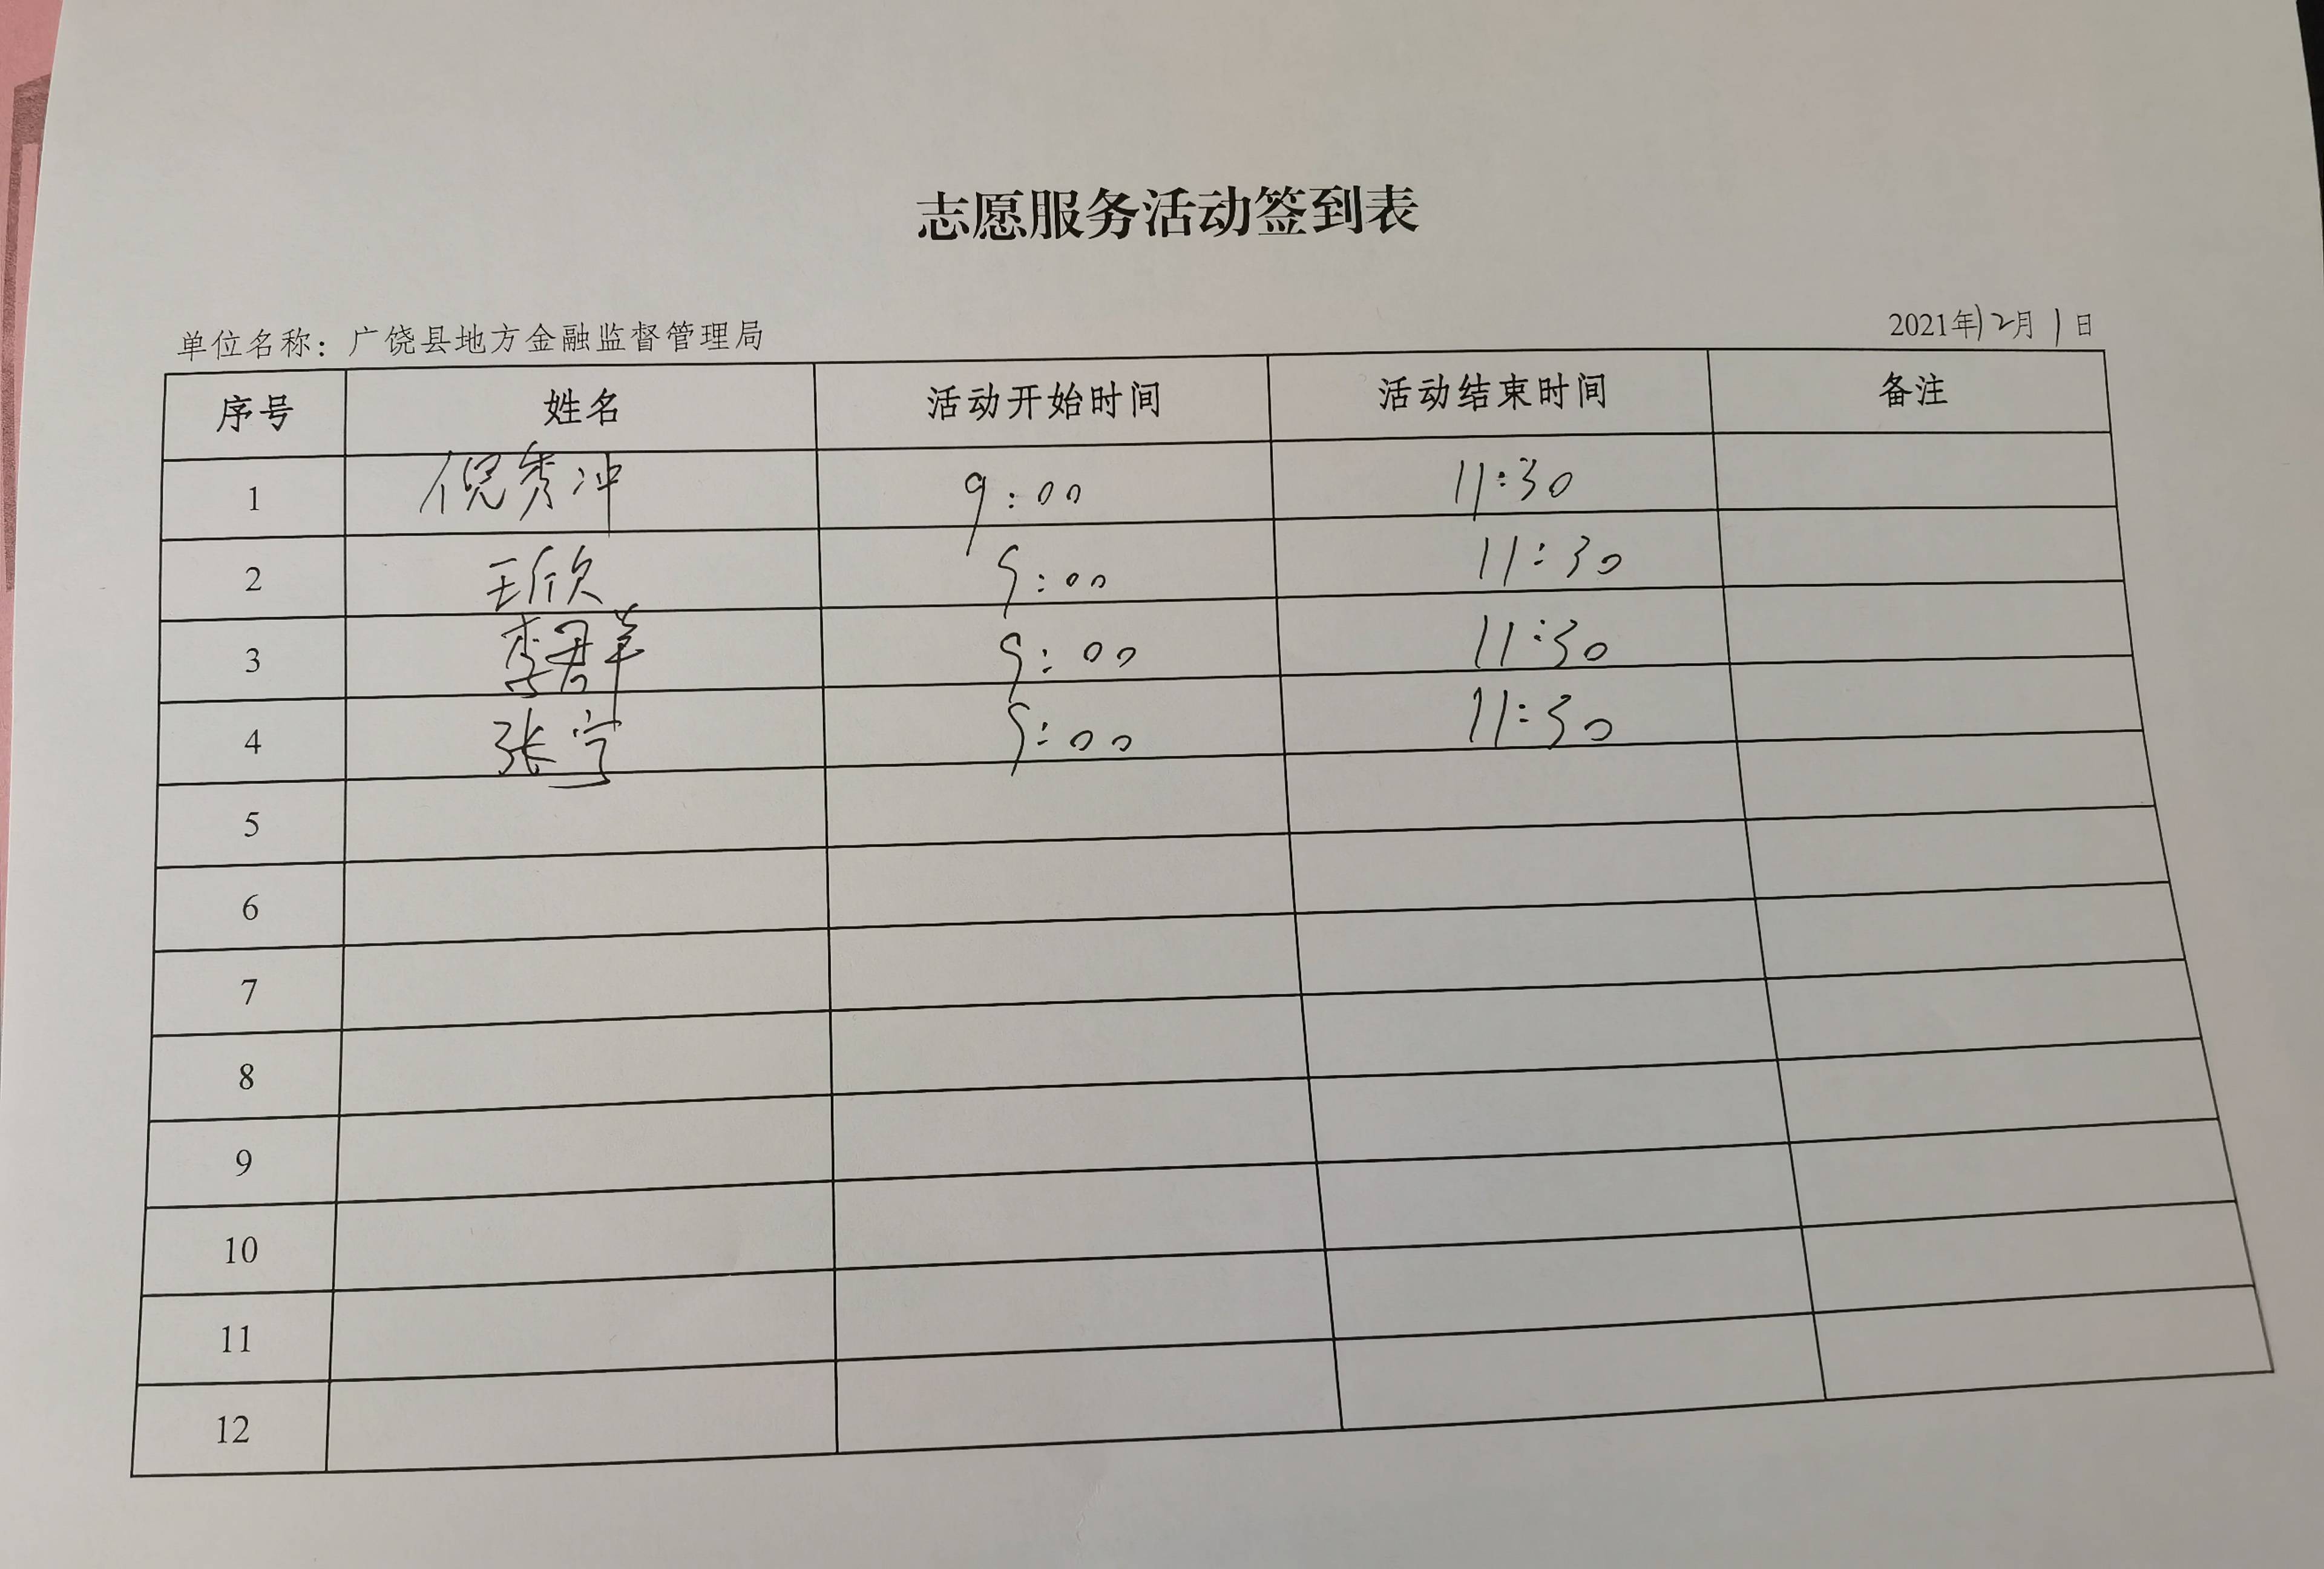 志愿服务活动签到表
单位名称：广饶县地方金融监督管理局 2021年12月1日
序号 姓名 活动开始时间 活动结束时间 备注
1 倪秀冲 9:00 11:30
2 王欣 9:00 11:30
3 李君羊 9:00 11:30
4 张宁 9:00 11:30
5
6
7
8
9
10
11
12